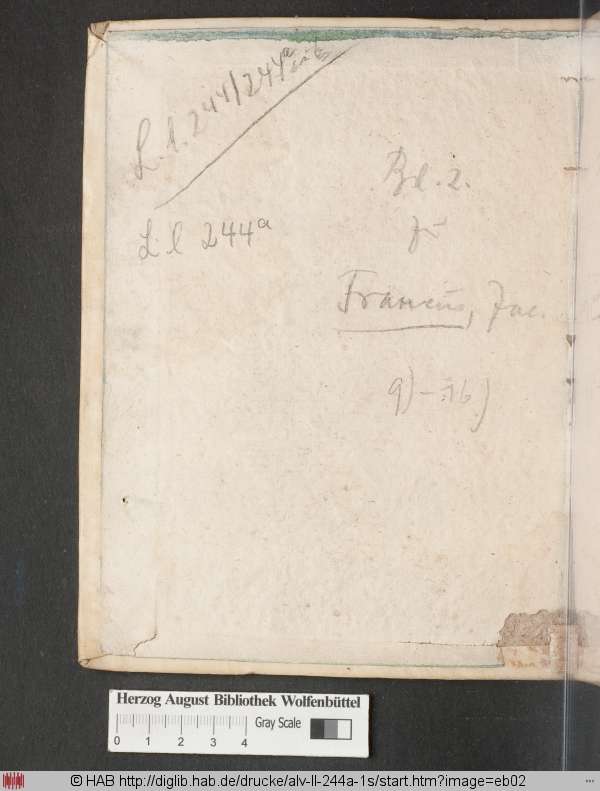 L. l. 244/244a
L. l 244a
Bd. 2.
zu
Francus, Jac.
9) – 16)
Herzog August Bibliothek Wolfenbüttel
0 1 2 3 4 Gray Scale
© HAB http://diglib.hab.de/drucke/alv-ll-244a-1s/start.htm?image=eb02